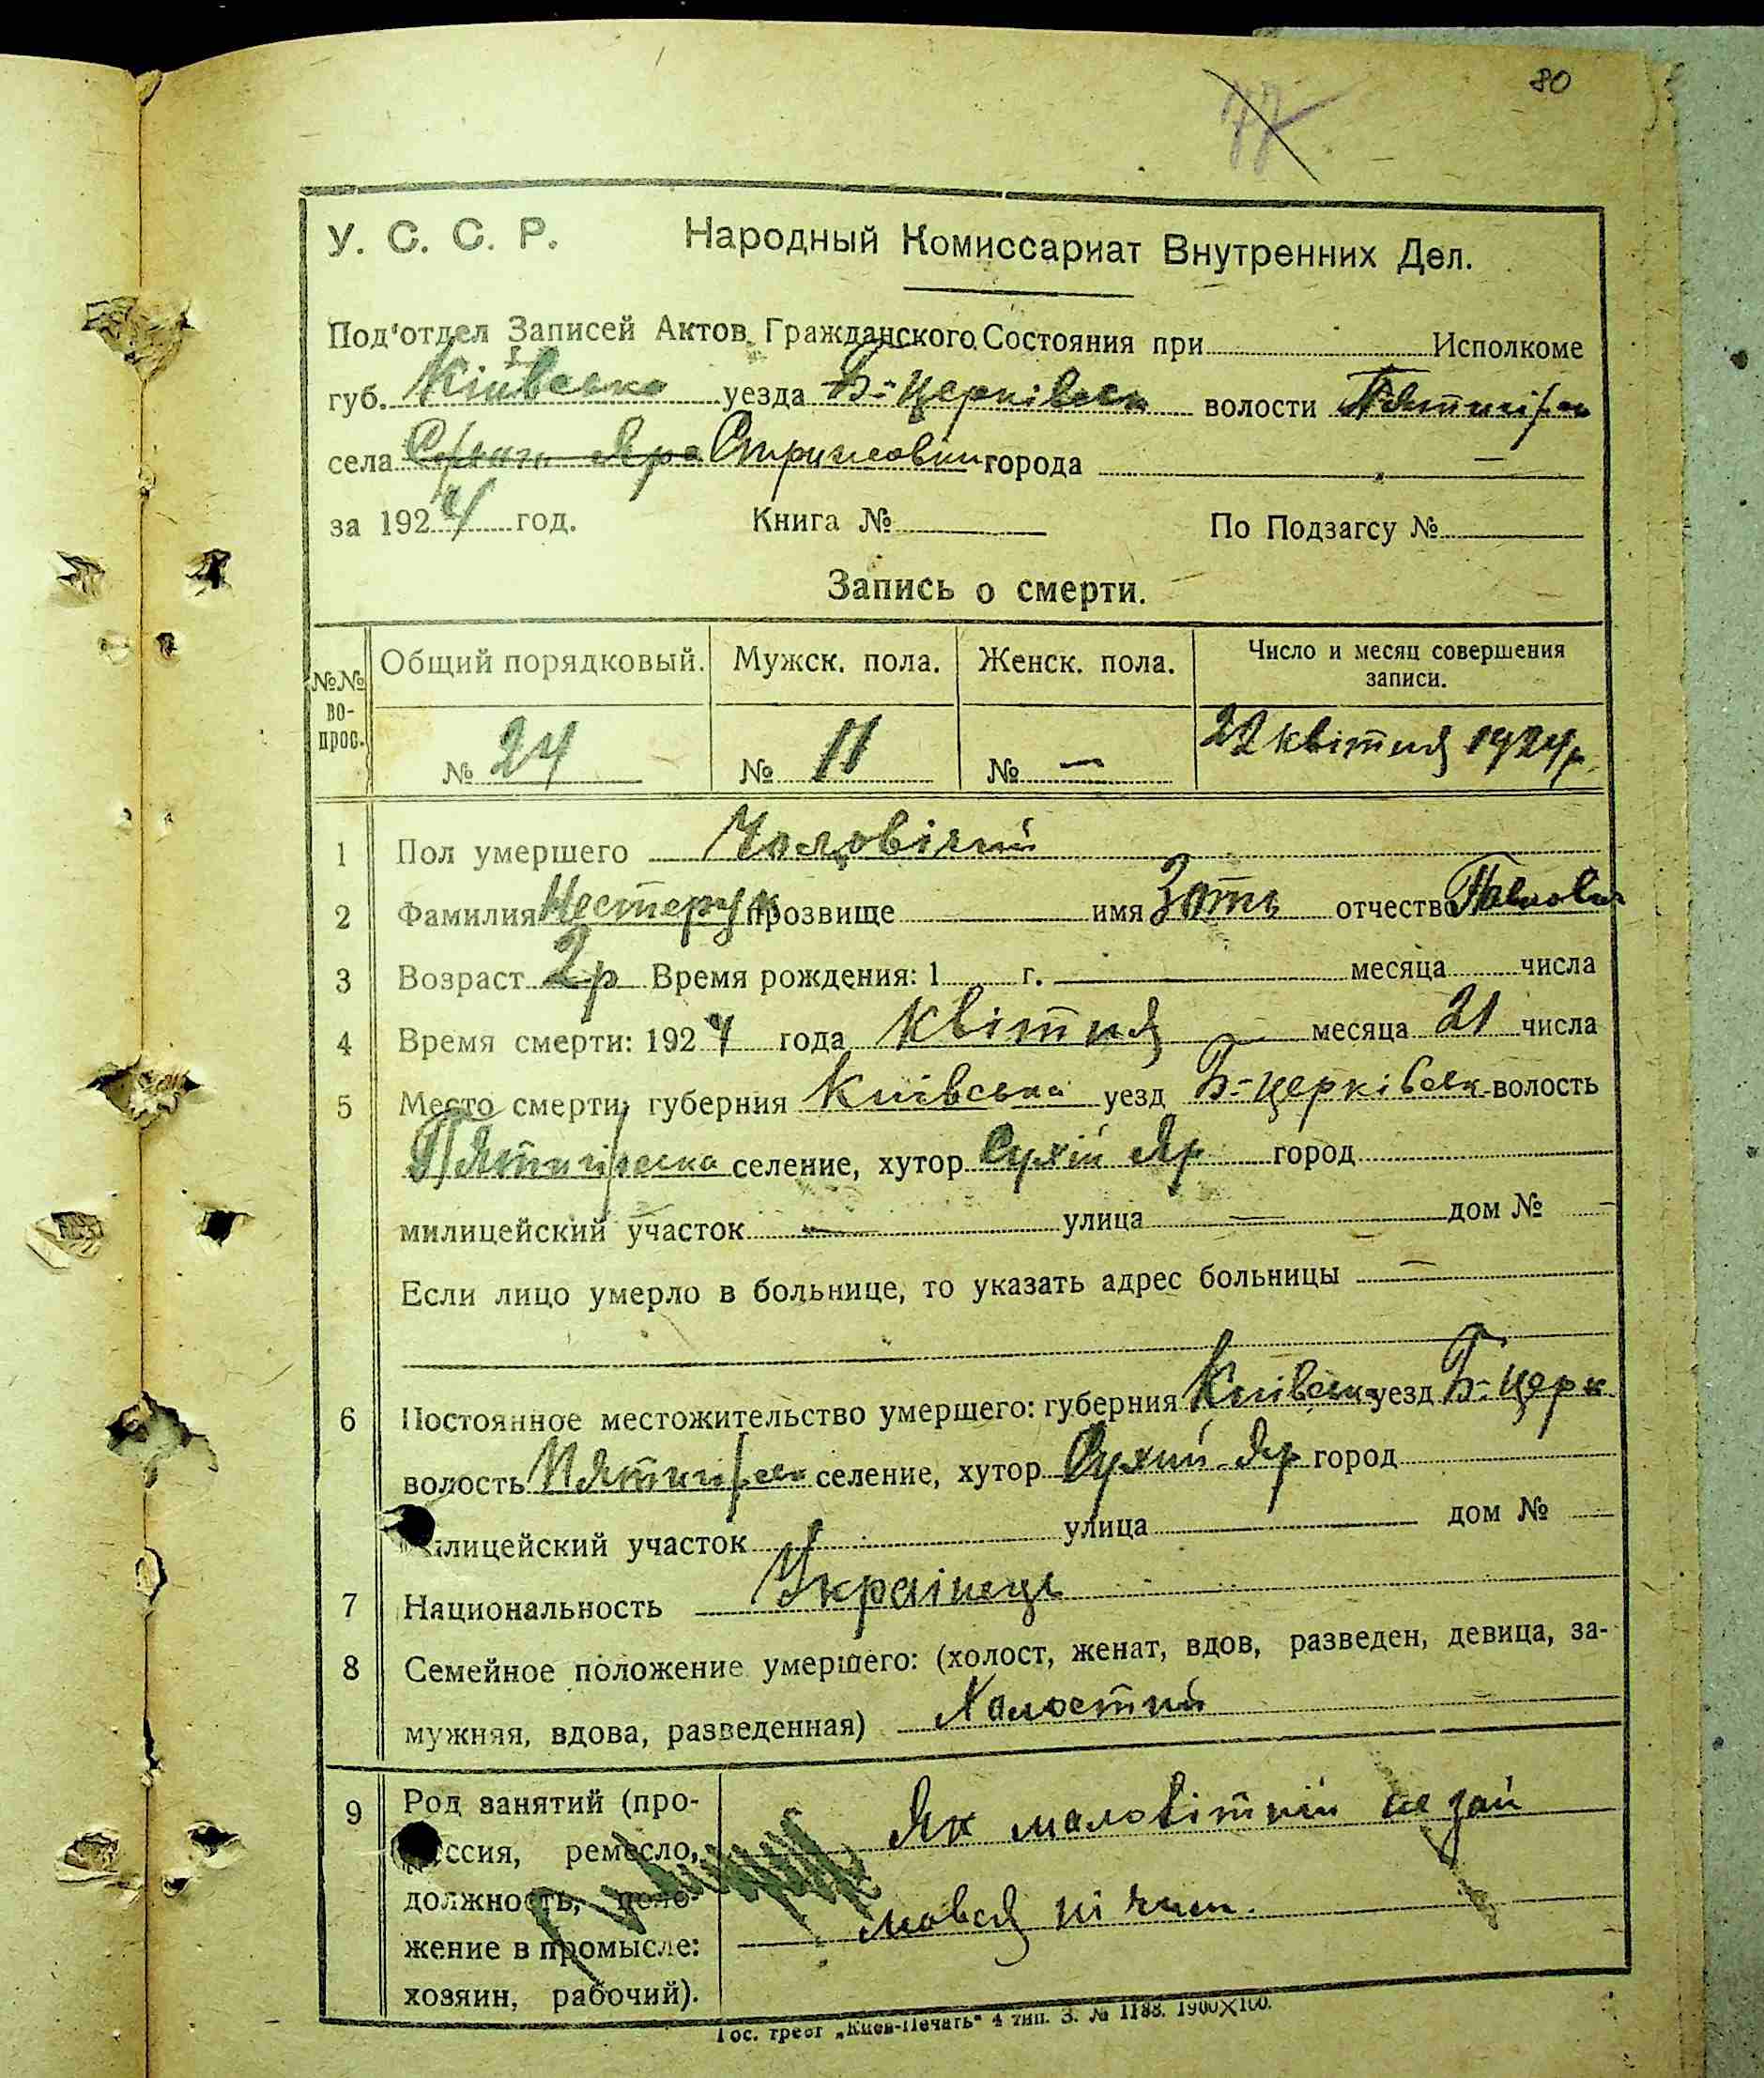 80
77
У. С. С. Р. Народный Комиссариат Внутренних Дел.
Под'отдел Записей Актов Гражданского Состояния при Исполкоме
губ. Київська уезда Б-Церківськ волости Пятигірськ
села Сухого Яра города —
за 1924 год. Книга № По Подзагсу №
Запись о смерти.
№№ во-прос. Общий порядковый. Мужск. пола. Женск. пола. Число и месяц совершения записи.
№ 24 № 11 № — 22 квітня 1924р.
1 Пол умершего Чоловічий
2 Фамилия Нестерук прозвище имя Зоть отчество Павлович
3 Возраст 2р Время рождения: 1 г. месяца числа
4 Время смерти: 1924 года квітня месяца 21 числа
5 Место смерти: губерния Київська уезд Б-церківськ волость
Пятигірська селение, хутор Сухій Яр город
милицейский участок — улица — дом № —
Если лицо умерло в больнице, то указать адрес больницы —
6 Постоянное местожительство умершего: губерния Київська уезд Б-Церк
волость Пятигірськ селение, хутор Сухий Яр город
илицейский участок улица дом №
7 Национальность Українець
8 Семейное положение умершего: (холост, женат, вдов, разведен, девица, за-
мужняя, вдова, разведенная) Холостий
9 Род занятий (про-
ссия, ремесло,
должность, поло-
жение в промысле:
хозяин, рабочий).
Як малолітній не зай
мовся нічим.
Гос. трест „Киев-Печать" 4 тип. З. № 1188. 1900×100.